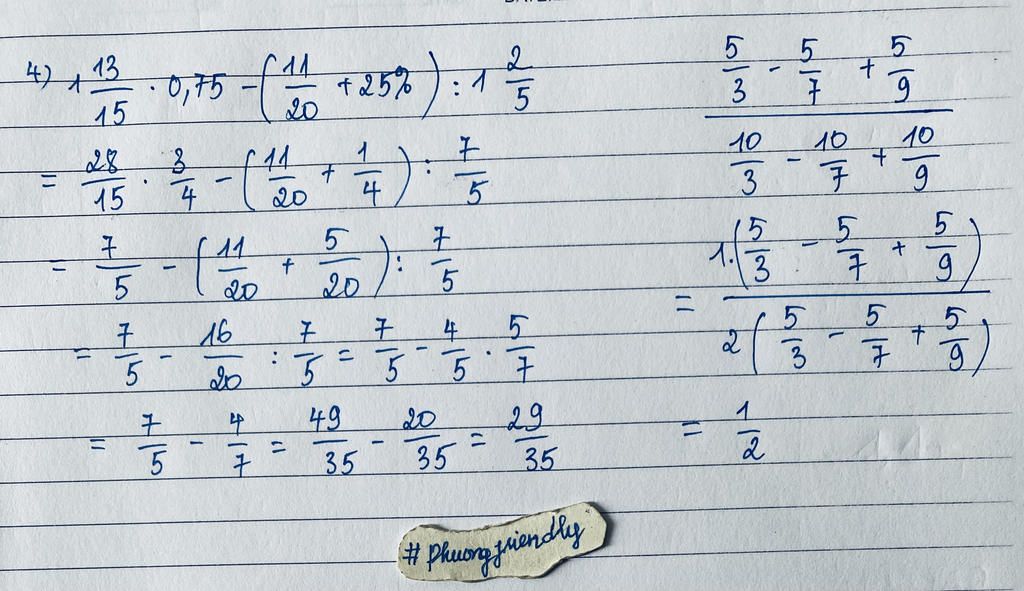 4) 1 13/15 . 0,75 - (11/20 + 25%) : 1 2/5
= 28/15 . 3/4 - (11/20 + 1/4) : 7/5
= 7/5 - (11/20 + 5/20) : 7/5
= 7/5 - 16/20 : 7/5 = 7/5 - 4/5 . 5/7
= 7/5 - 4/7 = 49/35 - 20/35 = 29/35
5/3 - 5/7 + 5/9
10/3 - 10/7 + 10/9
= 1.(5/3 - 5/7 + 5/9)
2(5/3 - 5/7 + 5/9)
= 1/2
#phuongfriendly